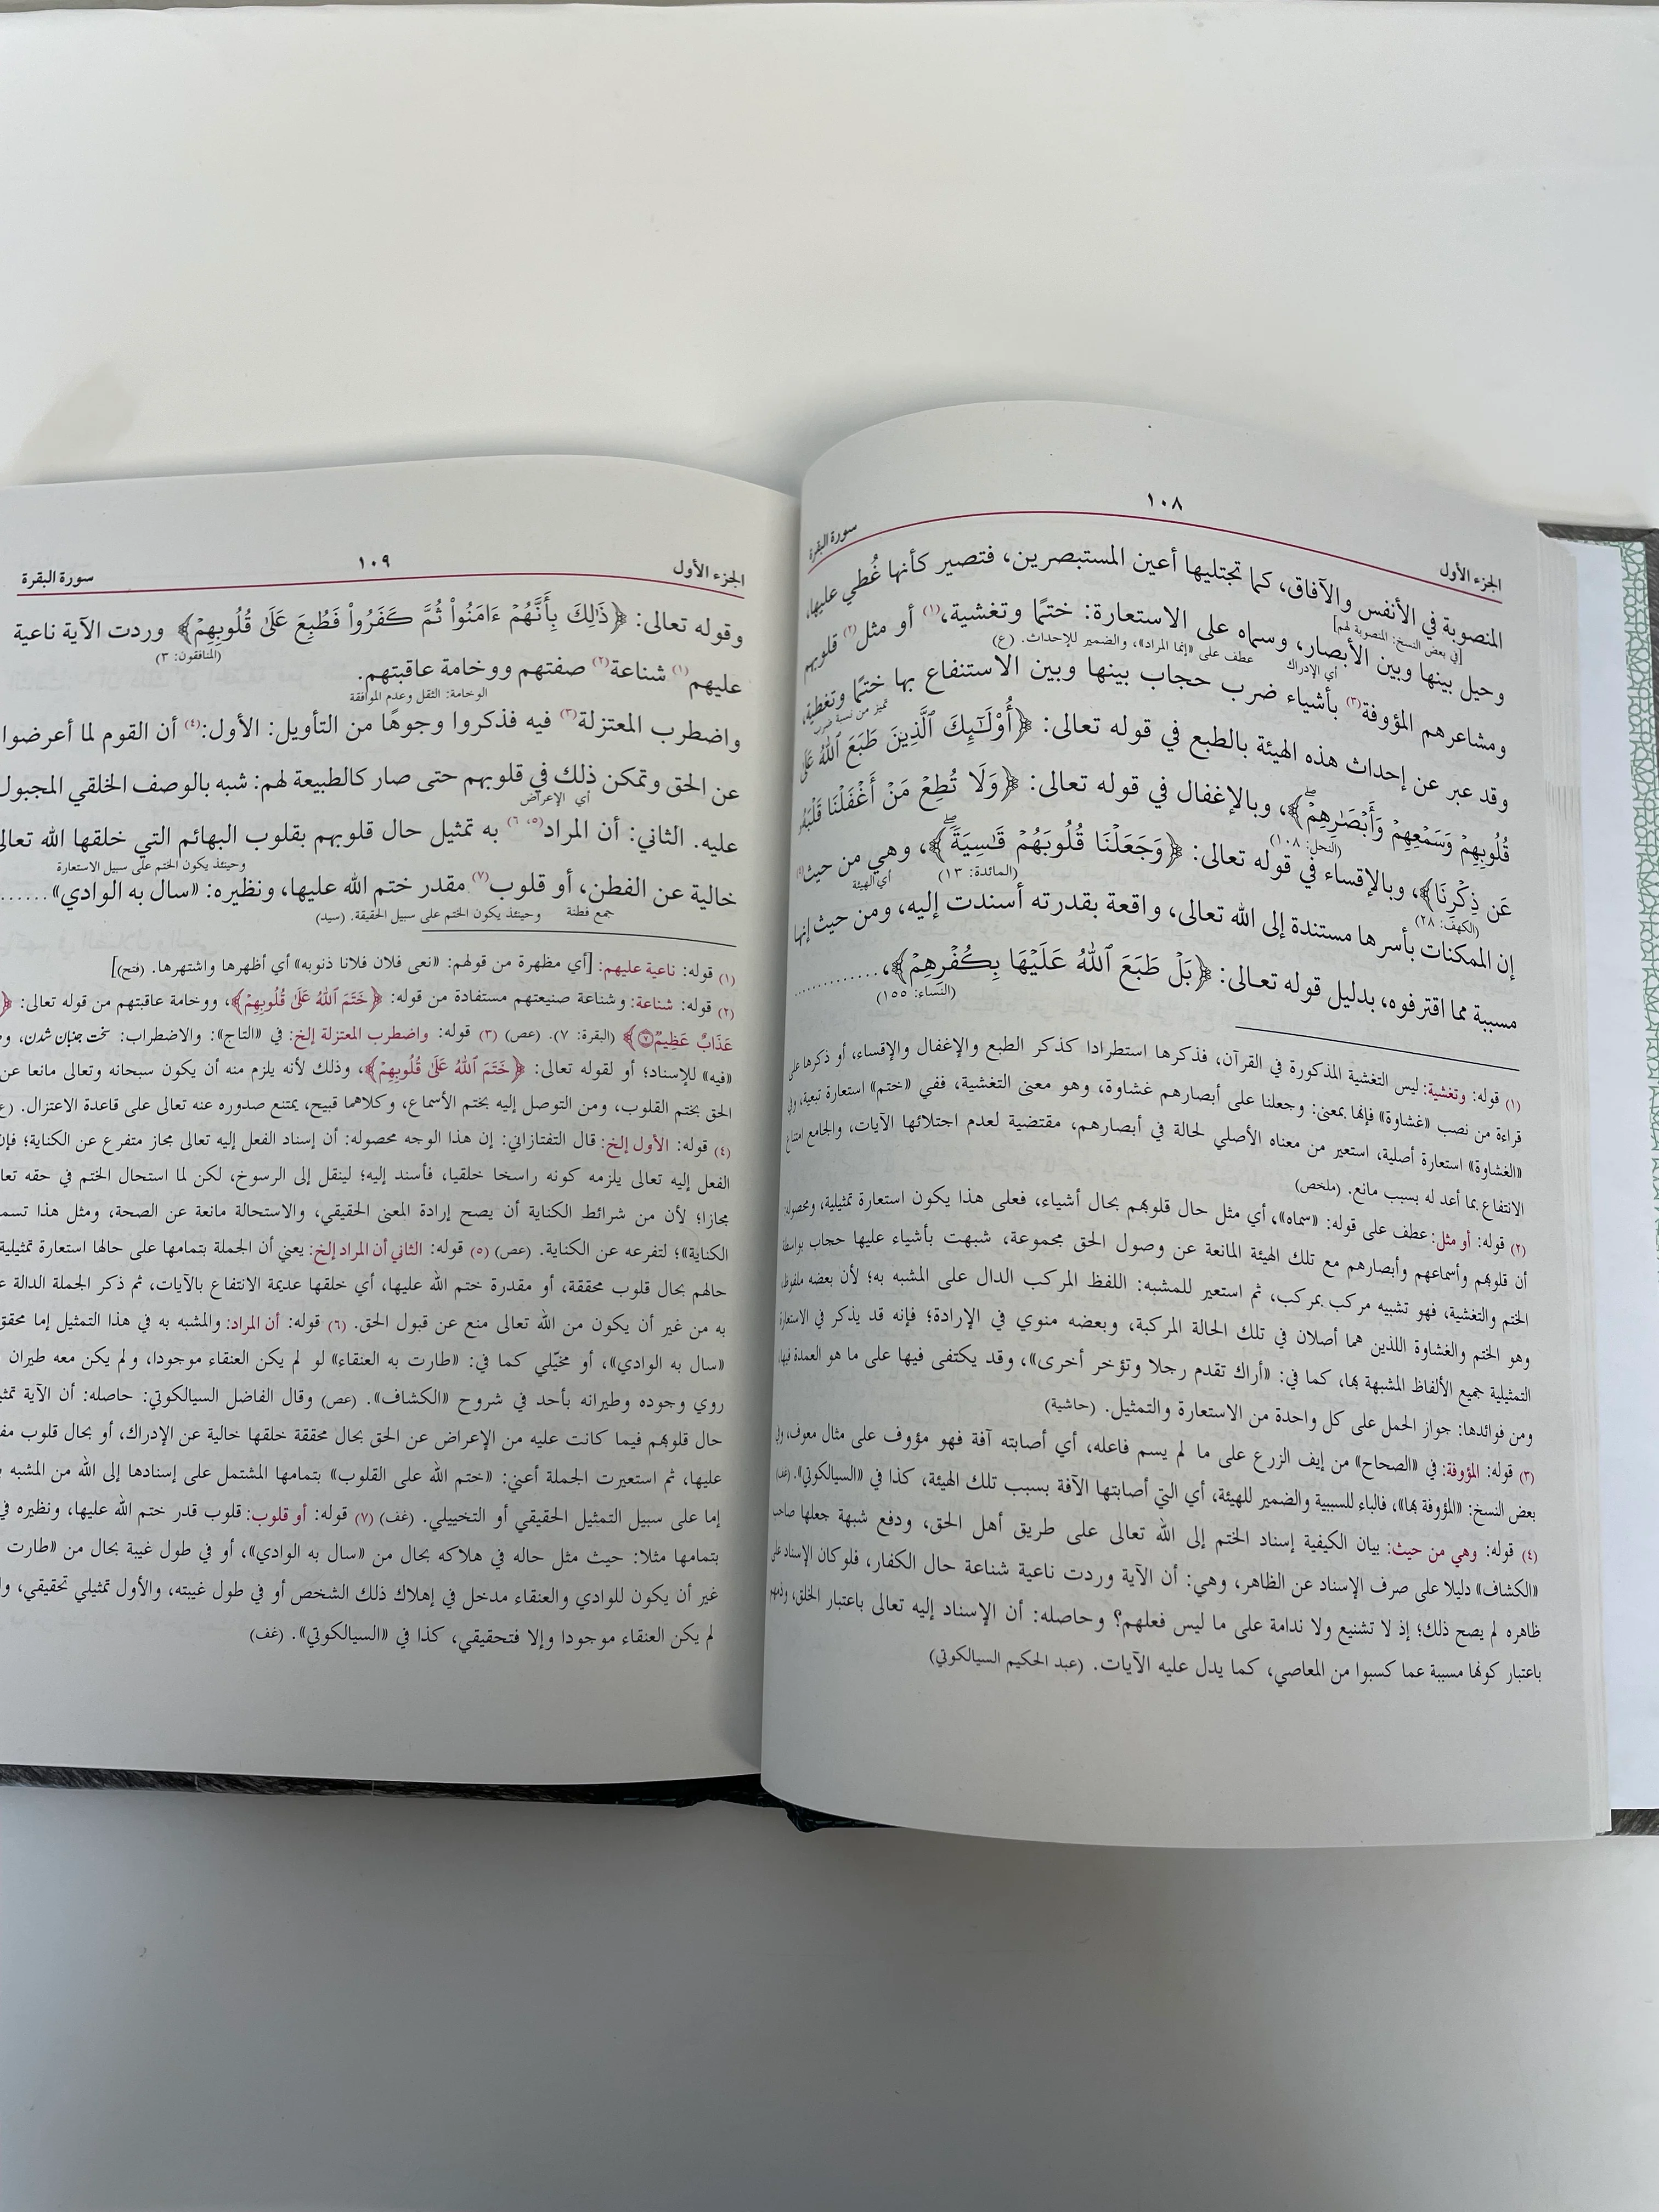 الجزء الأول ١٠٨ سورة البقرة
المنصوبة في الأنفس والآفاق، كما تجتليها أعين المستبصرين، فتصير كأنها غُطي عليها،
[في بعض النسخ: المنصوبة لهم]
وحيل بينها وبين الأبصار، وسماه على الاستعارة: ختمًا وتغشية،(١) أو مثل(٢) قلوبهم
أي الإدراك عطف على «إنما المراد»، والضمير للإحداث. (ع)
ومشاعرهم المؤوفة(٣) بأشياء ضرب حجاب بينها وبين الاستنفاع بها ختمًا وتغطية،
تميز من نسبة ضرب
وقد عبر عن إحداث هذه الهيئة بالطبع في قوله تعالى: ﴿أُوْلَٰٓئِكَ ٱلَّذِينَ طَبَعَ ٱللَّهُ عَلَىٰ
قُلُوبِهِمۡ وَسَمۡعِهِمۡ وَأَبۡصَٰرِهِمۡۖ﴾، وبالإغفال في قوله تعالى: ﴿وَلَا تُطِعۡ مَنۡ أَغۡفَلۡنَا قَلۡبَهُۥ
(النحل: ١٠٨)
عَن ذِكۡرِنَا﴾، وبالإقساء في قوله تعالى: ﴿وَجَعَلۡنَا قُلُوبَهُمۡ قَٰسِيَةٗۖ﴾، وهي من حيث(٤)
(الكهف: ٢٨) (المائدة: ١٣) أي الهيئة
إن الممكنات بأسرها مستندة إلى الله تعالى، واقعة بقدرته أسندت إليه، ومن حيث إنها
مسببة مما اقترفوه، بدليل قوله تعالى: ﴿بَلۡ طَبَعَ ٱللَّهُ عَلَيۡهَا بِكُفۡرِهِمۡ﴾، ............
(النساء: ١٥٥)
(١) قوله: وتغشية: ليس التغشية المذكورة في القرآن، فذكرها استطرادا كذكر الطبع والإغفال والإقساء، أو ذكرها على
قراءة من نصب «غشاوة» فإنها بمعنى: وجعلنا على أبصارهم غشاوة، وهو معنى التغشية، ففي «ختم» استعارة تبعية، وفي
«الغشاوة» استعارة أصلية، استعير من معناه الأصلي لحالة في أبصارهم، مقتضية لعدم اجتلائها الآيات، والجامع امتناع
الانتفاع بما أعد له بسبب مانع. (ملخص)
(٢) قوله: أو مثل: عطف على قوله: «سماه»، أي مثل حال قلوبهم بحال أشياء، فعلى هذا يكون استعارة تمثيلية، ومحصوله:
أن قلوبهم وأسماعهم وأبصارهم مع تلك الهيئة المانعة عن وصول الحق مجموعة، شبهت بأشياء عليها حجاب بواسطة
الختم والتغشية، فهو تشبيه مركب بمركب، ثم استعير للمشبه: اللفظ المركب الدال على المشبه به؛ لأن بعضه ملفوظ،
وهو الختم والغشاوة اللذين هما أصلان في تلك الحالة المركبة، وبعضه منوي في الإرادة؛ فإنه قد يذكر في الاستعارة
التمثيلية جميع الألفاظ المشبهة بها، كما في: «أراك تقدم رجلا وتؤخر أخرى»، وقد يكتفى فيها على ما هو العمدة فيها،
ومن فوائدها: جواز الحمل على كل واحدة من الاستعارة والتمثيل. (حاشية)
(٣) قوله: المؤوفة: في «الصحاح» من إيف الزرع على ما لم يسم فاعله، أي أصابته آفة فهو مؤوف على مثال معوف، وفي
بعض النسخ: «المؤوفة بها»، فالباء للسببية والضمير للهيئة، أي التي أصابتها الآفة بسبب تلك الهيئة، كذا في «السيالكوتي». (غف)
(٤) قوله: وهي من حيث: بيان الكيفية إسناد الختم إلى الله تعالى على طريق أهل الحق، ودفع شبهة جعلها صاحب
«الكشاف» دليلا على صرف الإسناد عن الظاهر، وهي: أن الآية وردت ناعية شناعة حال الكفار، فلو كان الإسناد على
ظاهره لم يصح ذلك؛ إذ لا تشنيع ولا ندامة على ما ليس فعلهم؟ وحاصله: أن الإسناد إليه تعالى باعتبار الخلق، وذمهم
باعتبار كونها مسببة عما كسبوا من المعاصي، كما يدل عليه الآيات. (عبد الحكيم السيالكوتي)
الجزء الأول ١٠٩ سورة البقرة
وقوله تعالى: ﴿ذَٰلِكَ بِأَنَّهُمۡ ءَامَنُواْ ثُمَّ كَفَرُواْ فَطُبِعَ عَلَىٰ قُلُوبِهِمۡ﴾ وردت الآية ناعية
(المنافقون: ٣)
عليهم(١) شناعة(٢) صفتهم ووخامة عاقبتهم.
الوخامة: الثقل وعدم الموافقة
واضطرب المعتزلة(٣) فيه فذكروا وجوهًا من التأويل: الأول:(٤) أن القوم لما أعرضوا
عن الحق وتمكن ذلك في قلوبهم حتى صار كالطبيعة لهم: شبه بالوصف الخلقي المجبول
أي الإعراض
عليه. الثاني: أن المراد(٥، ٦) به تمثيل حال قلوبهم بقلوب البهائم التي خلقها الله تعالى
وحينئذ يكون الختم على سبيل الاستعارة
خالية عن الفطن، أو قلوب(٧) مقدر ختم الله عليها، ونظيره: «سال به الوادي» ......
جمع فطنة وحينئذ يكون الختم على سبيل الحقيقة. (سيد)
(١) قوله: ناعية عليهم: [أي مظهرة من قولهم: «نعى فلان فلانا ذنوبه» أي أظهرها واشتهرها. (فتح)]
(٢) قوله: شناعة: وشناعة صنيعتهم مستفادة من قوله: ﴿خَتَمَ ٱللَّهُ عَلَىٰ قُلُوبِهِمۡ﴾، ووخامة عاقبتهم من قوله تعالى: ﴿
عَذَابٌ عَظِيمٞ ٧﴾ (البقرة: ٧). (عص) (٣) قوله: واضطرب المعتزلة إلخ: في «التاج»: والاضطراب: سخت جنبان شدن،
«فيه» للإسناد؛ أو لقوله تعالى: ﴿خَتَمَ ٱللَّهُ عَلَىٰ قُلُوبِهِمۡ﴾، وذلك لأنه يلزم منه أن يكون سبحانه وتعالى مانعا عن
الحق بختم القلوب، ومن التوصل إليه بختم الأسماع، وكلاهما قبيح، يمتنع صدوره عنه تعالى على قاعدة الاعتزال.
(٤) قوله: الأول إلخ: قال التفتازاني: إن هذا الوجه محصوله: أن إسناد الفعل إليه تعالى مجاز متفرع عن الكناية؛ فإن
الفعل إليه تعالى يلزمه كونه راسخا خلقيا، فأسند إليه؛ لينقل إلى الرسوخ، لكن لما استحال الختم في حقه
مجازا؛ لأن من شرائط الكناية أن يصح إرادة المعنى الحقيقي، والاستحالة مانعة عن الصحة، ومثل هذا
الكناية»؛ لتفرعه عن الكناية. (عص) (٥) قوله: الثاني أن المراد إلخ: يعني أن الجملة بتمامها على حالها استعارة تمثيلية
حالهم بحال قلوب محققة، أو مقدرة ختم الله عليها، أي خلقها عديمة الانتفاع بالآيات، ثم ذكر الجملة الدالة
به من غير أن يكون من الله تعالى منع عن قبول الحق. (٦) قوله: أن المراد: والمشبه به في هذا التمثيل إما محقق
«سال به الوادي»، أو مخيّلي كما في: «طارت به العنقاء» لو لم يكن العنقاء موجودا، ولم يكن معه طيران
روي وجوده وطيرانه بأحد في شروح «الكشاف». (عص) وقال الفاضل السيالكوتي: حاصله: أن الآية
حال قلوبهم فيما كانت عليه من الإعراض عن الحق بحال محققة خلقها خالية عن الإدراك، أو بحال قلوب
عليها، ثم استعيرت الجملة أعني: «ختم الله على القلوب» بتمامها المشتمل على إسنادها إلى الله من المشبه
إما على سبيل التمثيل الحقيقي أو التخييلي. (غف) (٧) قوله: أو قلوب: قلوب قدر ختم الله عليها، ونظيره في
بتمامها مثلا: حيث مثل حاله في هلاكه بحال من «سال به الوادي»، أو في طول غيبة بحال من «طارت
غير أن يكون للوادي والعنقاء مدخل في إهلاك ذلك الشخص أو في طول غيبته، والأول تمثيلي تحقيقي،
لم يكن العنقاء موجودا وإلا فتحقيقي، كذا في «السيالكوتي». (غف)